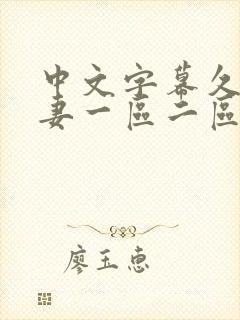 中文字幕久
妻一區二區
廖玉惠